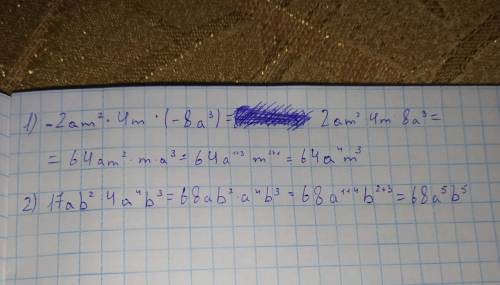 1) -2am²·4m·(-8a³)= 2am²4m8a³=
= 64am²·m·a³=64a¹⁺³m¹⁺¹=64a⁴m³
2) 17ab²·4a⁴b³=68ab²·a⁴b³=68a¹⁺⁴b²⁺³=68a⁵b⁵